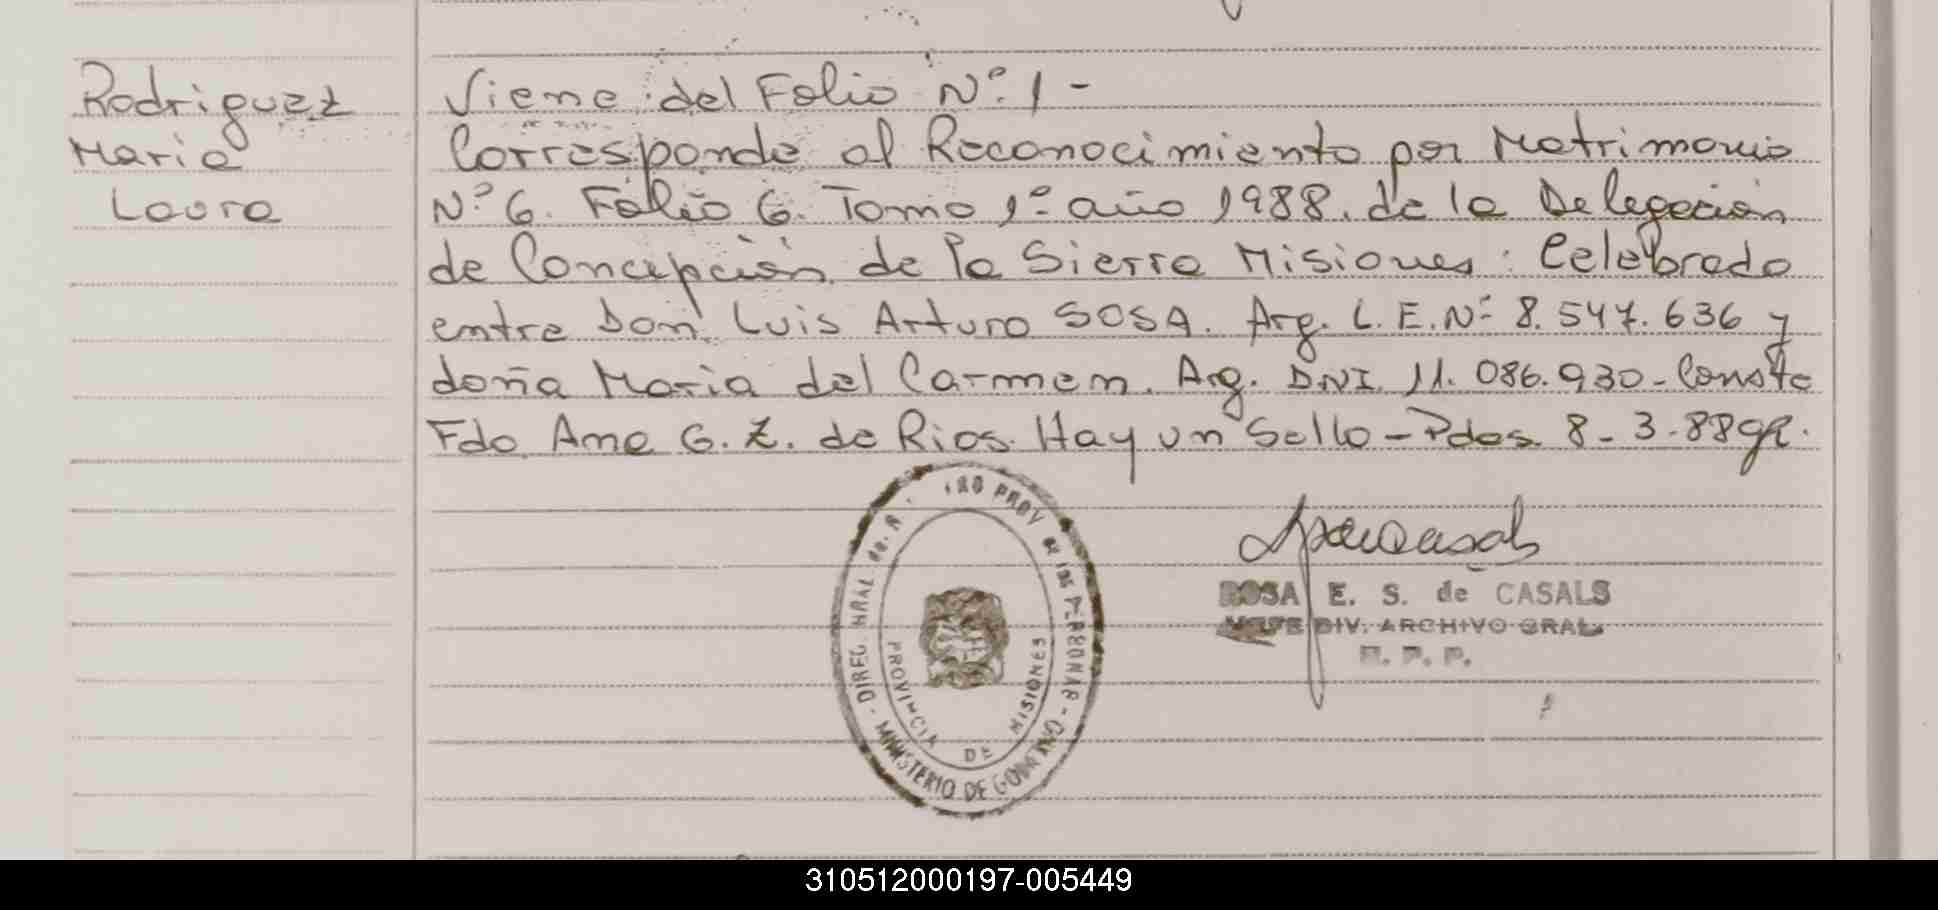 Rodriguez
Maria
Laura
Viene del Folio N° 1 -
Corresponde al Reconocimiento por Matrimonio
N° 6. Folio 6. Tomo 1° año 1988. de la Delegación
de Concepción de la Sierra Misiones: Celebrado
entre Don Luis Arturo SOSA. Arg. L.E. N° 8.547.636 y
doña Maria del Carmen. Arg. DNI. 11.086.930 - Conste
Fdo Ana G. Z. de Rios. Hay un Sello - Pdas. 8-3-88
PROV
DIREC
PROVINCIA DE MISIONES
MINISTERIO DE GOBIERNO
ROSA E. S. de CASALS
JEFE DIV. ARCHIVO GRAL
R. P. P.
310512000197-005449